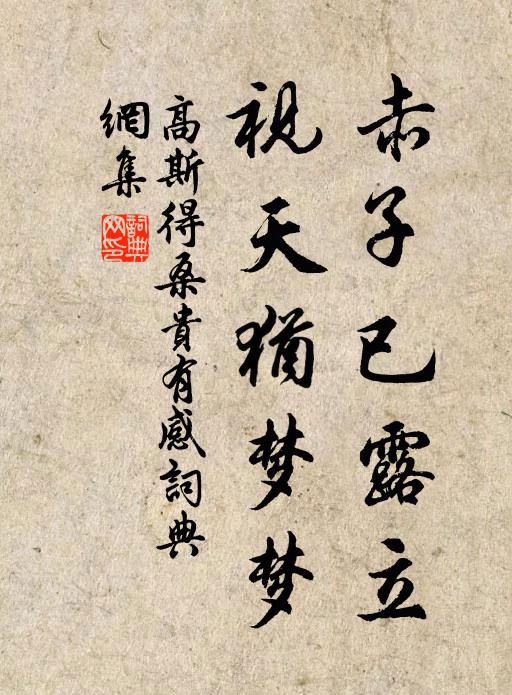 赤子已露立
視天猶梦梦
高斯得桑貴有感詞典
網集
詞典网印